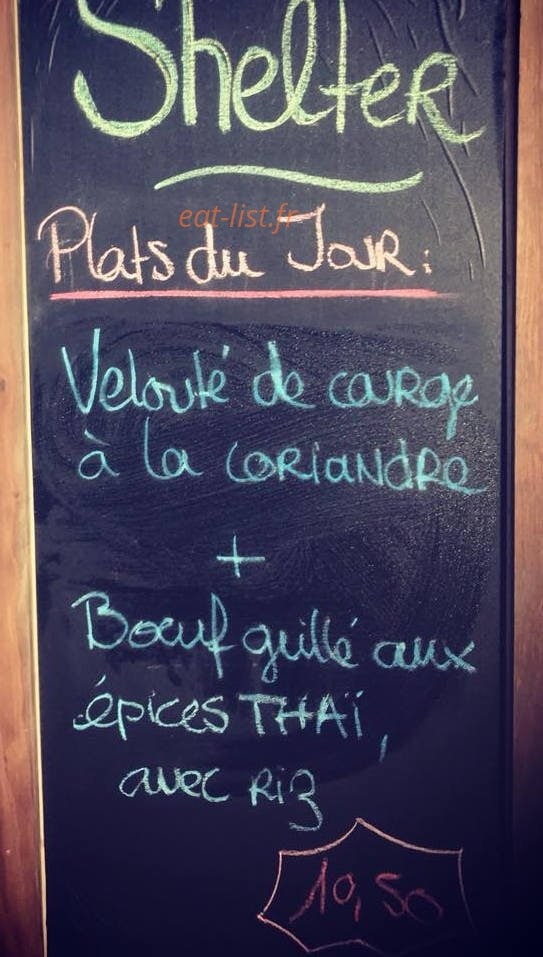 Shelter
eat-list.fr
Plats du Jour :
Velouté de courge
à la coriandre
+
Boeuf grillé aux
épices THAÏ,
avec Riz
10,50